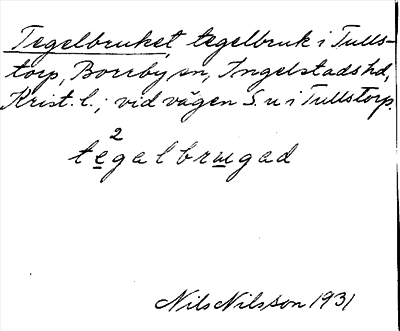 Tegelbruket, tegelbruk i Tulls-
torp, Borrby sn, Ingelstads hd,
Krist. l.; vid vägen S. u i Tullstorp.
2
tegalbrugad
Nils Nilsson 1931